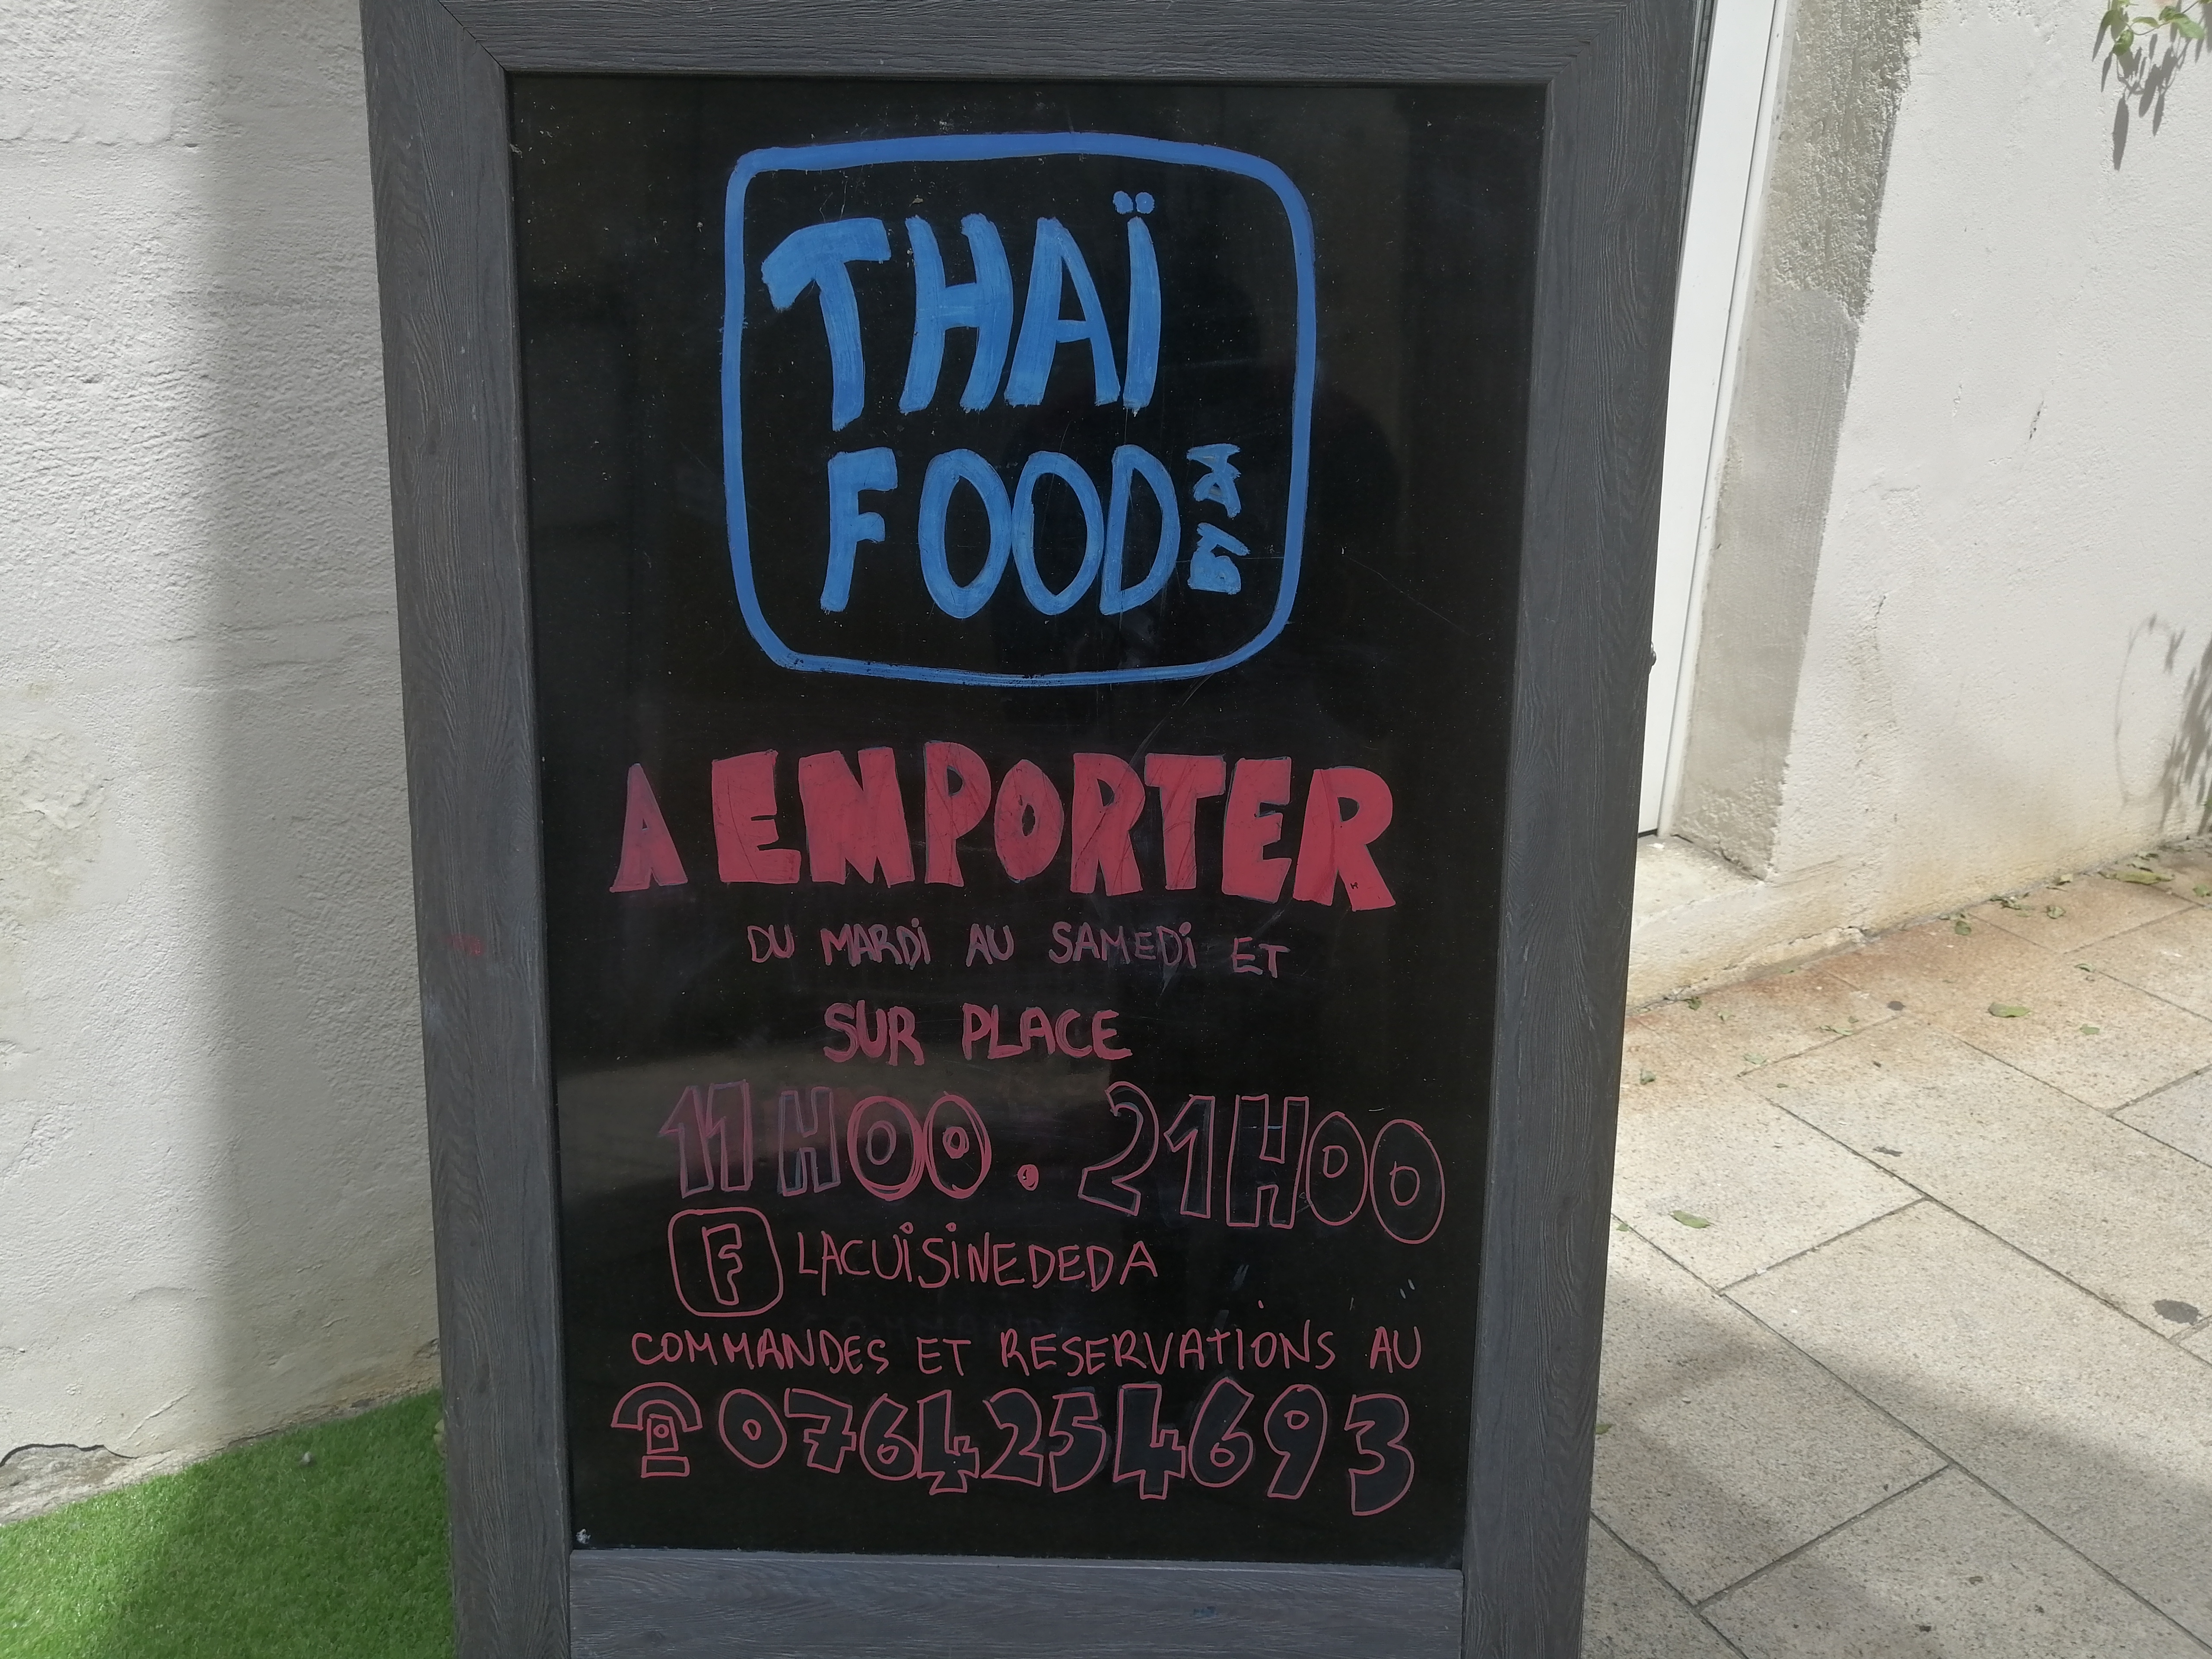 THAÏ
FOOD
BY DA
A EMPORTER
DU MARDI AU SAMEDI ET
SUR PLACE
11H00 . 21H00
F LACUISINEDEDA
COMMANDES ET RESERVATIONS AU
0764254693